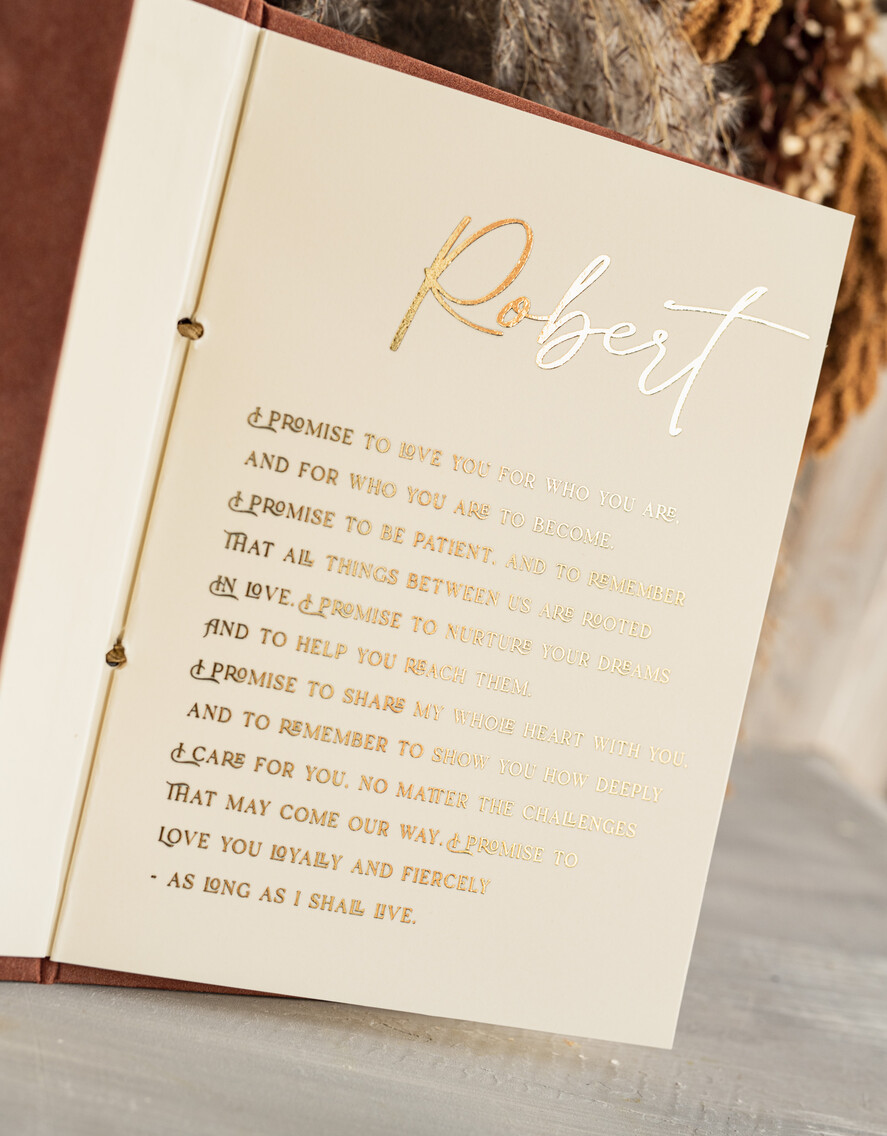 Robert
I PROMISE TO LOVE YOU FOR WHO YOU ARE,
AND FOR WHO YOU ARE TO BECOME.
I PROMISE TO BE PATIENT, AND TO REMEMBER
THAT ALL THINGS BETWEEN US ARE ROOTED
IN LOVE. I PROMISE TO NURTURE YOUR DREAMS
AND TO HELP YOU REACH THEM.
I PROMISE TO SHARE MY WHOLE HEART WITH YOU,
AND TO REMEMBER TO SHOW YOU HOW DEEPLY
I CARE FOR YOU, NO MATTER THE CHALLENGES
THAT MAY COME OUR WAY. I PROMISE TO
LOVE YOU LOYALLY AND FIERCELY
- AS LONG AS I SHALL LIVE.